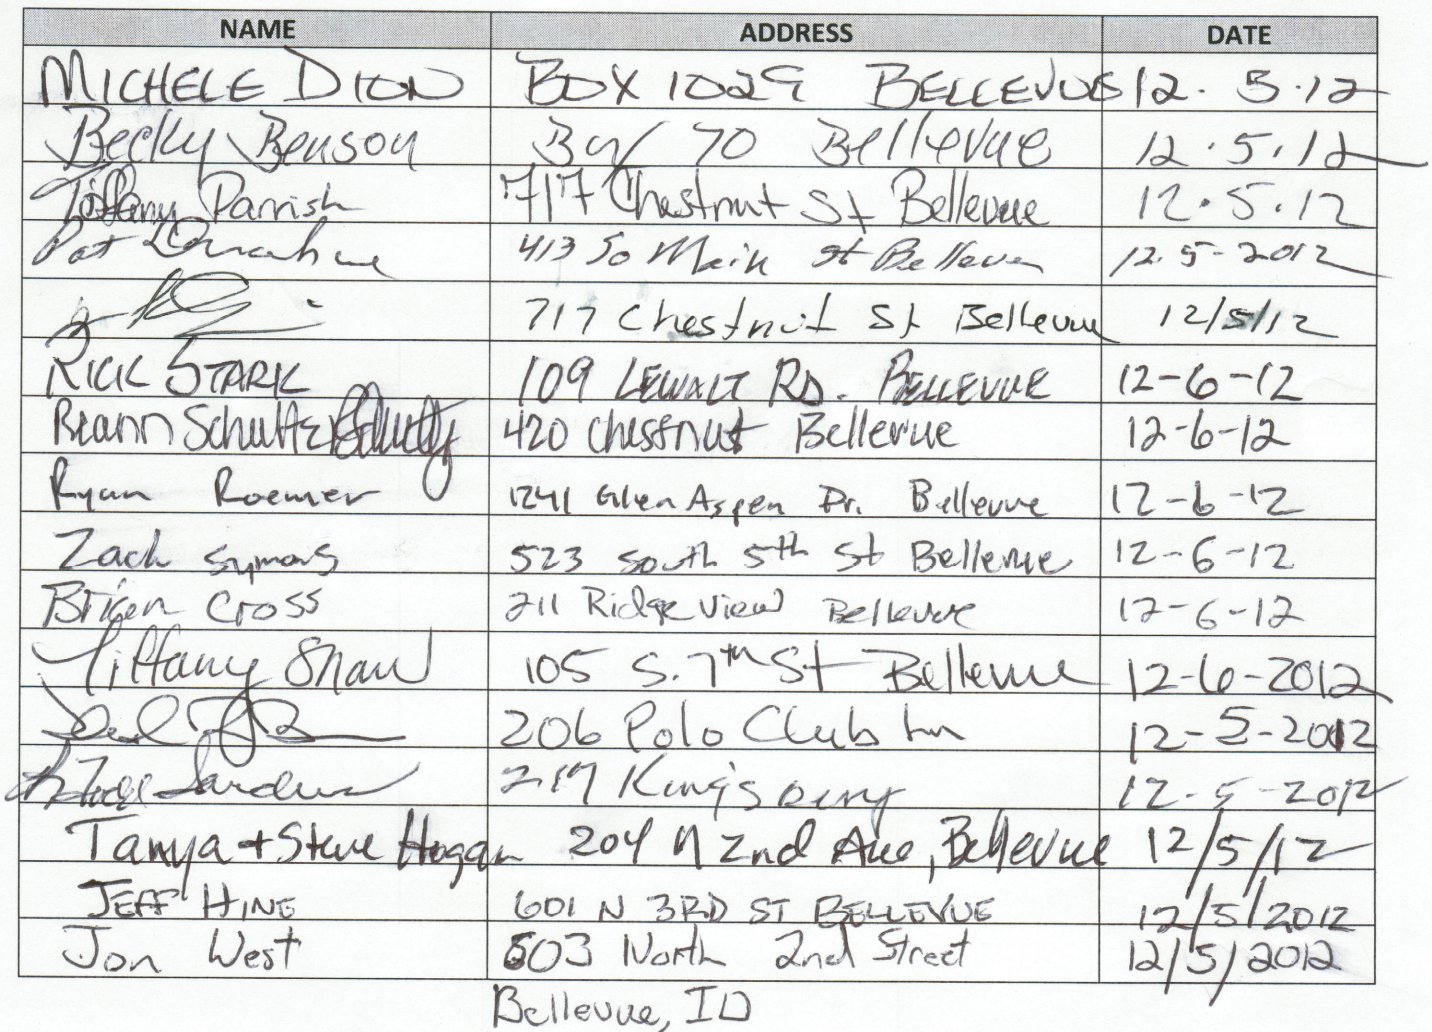 NAME ADDRESS DATE
MICHELE DION BOX 1029 BELLEVUE 12.5.12
Becky Benson Box 70 Bellevue 12.5.12
Tiffany Parrish 717 Chestnut St Bellevue 12.5.12
Pat 413 So Main St Bellevue 12.5-2012
717 Chestnut St Bellevue 12/5/12
RICK STARK 109 LEWALT RD. BELLEVUE 12-6-12
Reann Schultz 420 Chestnut Bellevue 12-6-12
Ryan Roemer 1241 Glen Aspen Dr. Bellevue 12-6-12
Zack Symons 523 South 5th St Bellevue 12-6-12
Brian Cross 211 Ridgeview Bellevue 12-6-12
Tiffany Shaw 105 S. 7th St Bellevue 12-6-2012
206 Polo Club Ln 12-5-2012
12-5-2012
Tanya + Steve Hogan 204 N 2nd Ave, Bellevue 12/5/12
JEFF HINE 601 N 3RD ST BELLEVUE 12/5/2012
Jon West 503 North 2nd Street 12/5/2012
Bellevue, ID